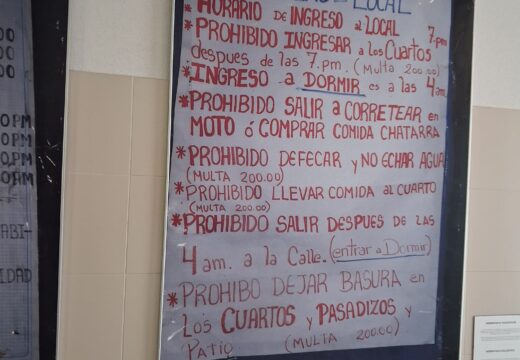 LOCAL
* HORARIO DE INGRESO al LOCAL 7.pm
* PROHIBIDO INGRESAR a los Cuartos
despues de las 7.pm. (Multa 200.00)
* INGRESO a DORMIR es a las 4 am.
* PROHIBIDO SALIR a CORRETEAR en
MOTO ó COMPRAR COMIDA CHATARRA
* PROHIBIDO DEFECAR y NO ECHAR AGUA
(MULTA 200.00)
* PROHIBIDO LLEVAR COMIDA al CUARTO
(MULTA 200.00)
* PROHIBIDO SALIR DESPUES DE LAS
4 am. a la Calle. (entrar a Dormir)
* PROHIBO DEJAR BASURA en
LOS CUARTOS y PASADIZOS y
PATIO (MULTA 200.00)
00
00
00
0 PM
0 PM
0.PM
0AM
ABI-
IDAD